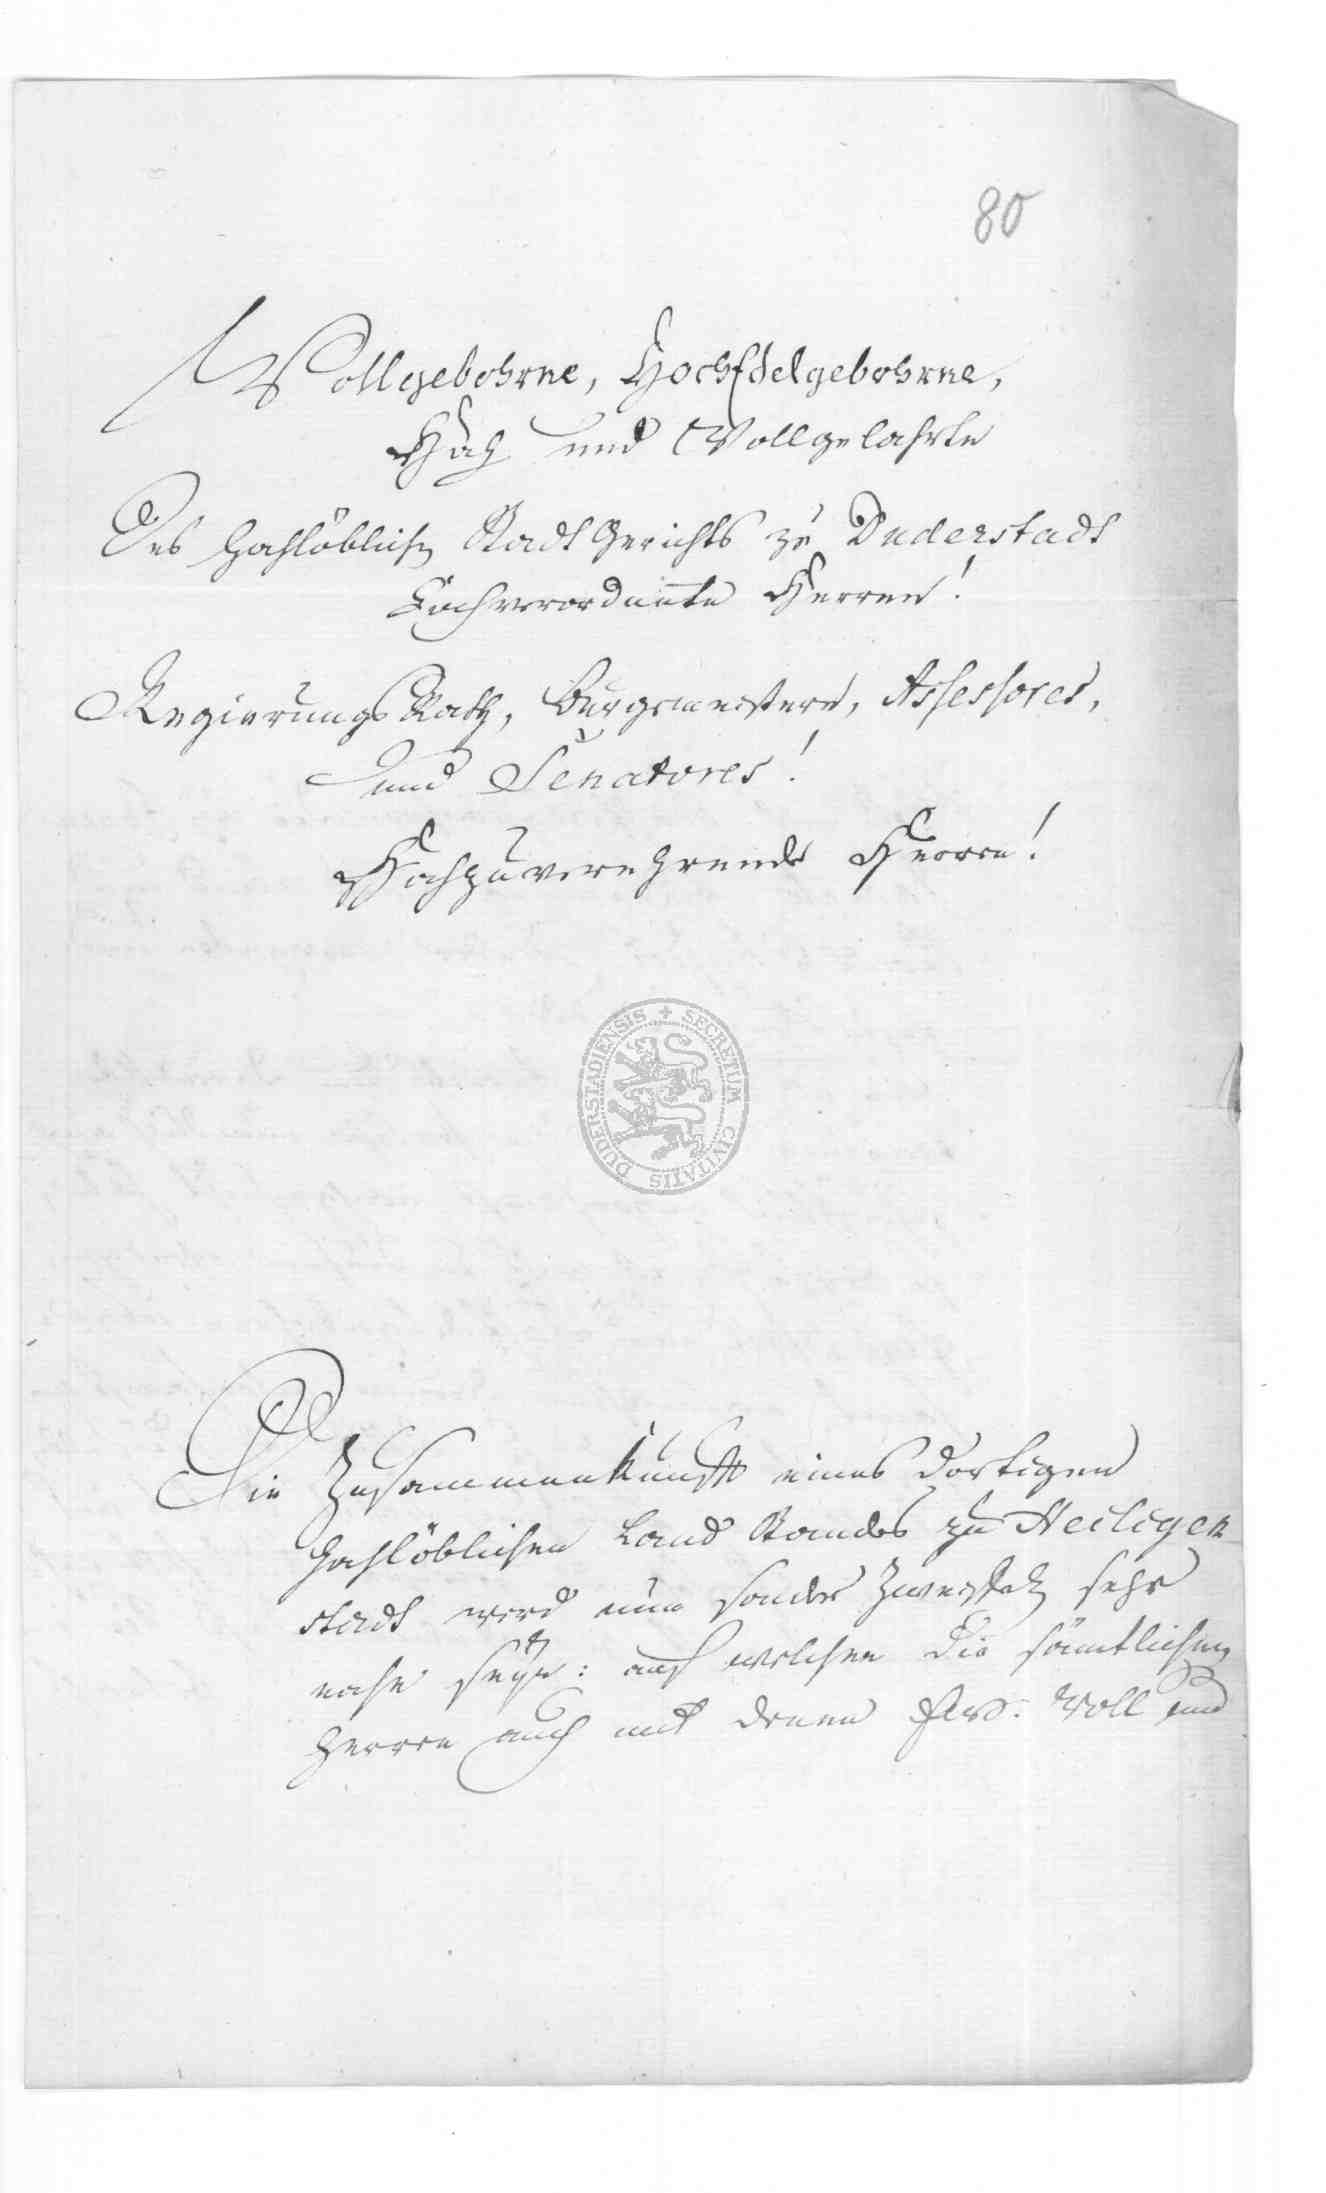 80
Wollgebohrne, HochEdelgebohrne,
Hoch und Wollgelahrte
Des Hochlöblichen Stadt Gerichts zu Duderstadt
Hochverordnete Herren!
Regierungs Rath, Burgemeistere, Assessores,
und Senatores!
Hochzuverehrende Herren!
DUDERSTADIENSIS + SECRETUM CIVITATIS
Die Zusammenkunfft eines dortigen
Hochlöblichen Land Standes zu Heiligen
stadt wird nun sonder Zweyfel sehr
nahe seyn: auf welchen die sämtlichen
Herren auch mit denen Woll und